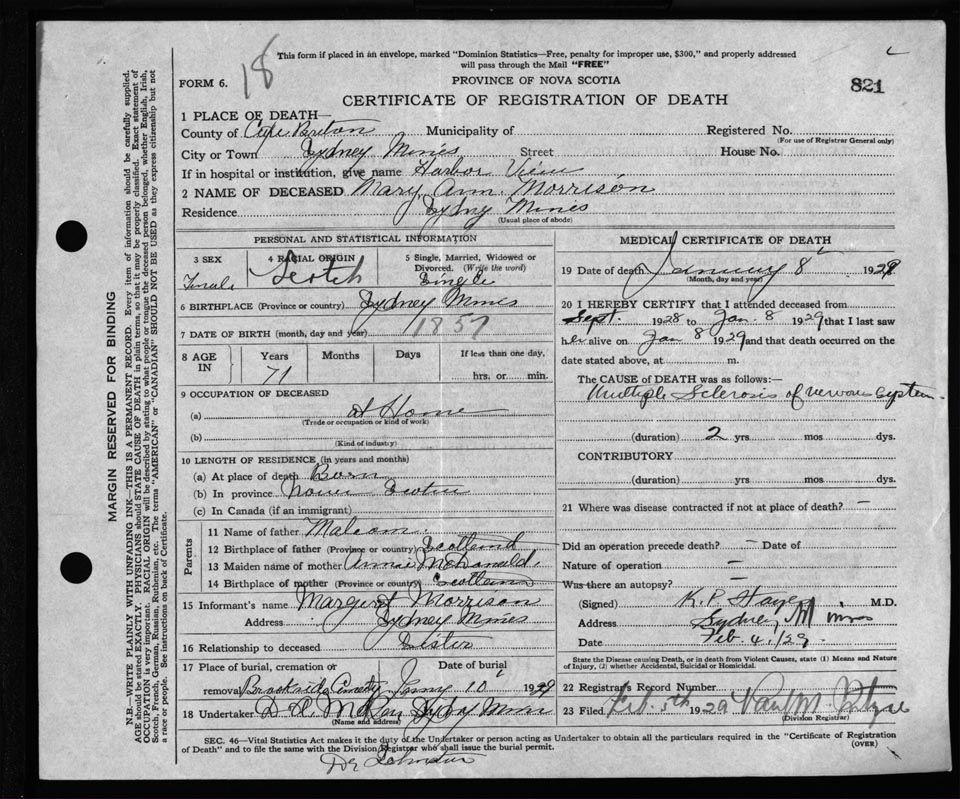 18
This form if placed in an envelope, marked "Dominion Statistics—Free, penalty for improper use, $300," and properly addressed
will pass through the Mail "FREE"
FORM 6.
PROVINCE OF NOVA SCOTIA
821
CERTIFICATE OF REGISTRATION OF DEATH
1 PLACE OF DEATH—
County of Cape Breton Municipality of Registered No.
(For use of Registrar General only)
City or Town Sydney Mines Street House No.
If in hospital or institution, give name Harbor View
2 NAME OF DECEASED Mary Ann Morrison
Residence Sydny Mines
(Usual place of abode)
PERSONAL AND STATISTICAL INFORMATION
3 SEX 4 RACIAL ORIGIN 5 Single, Married, Widowed or
Divorced. (Write the word)
Female Scotch Single
6 BIRTHPLACE (Province or country) Sydney Mines
7 DATE OF BIRTH (month, day and year) 1857
8 AGE IN Years Months Days If less than one day,
71 hrs. or min.
9 OCCUPATION OF DECEASED
(a) at Home
(Trade or occupation or kind of work)
(b)
(Kind of industry)
10 LENGTH OF RESIDENCE (in years and months)
(a) At place of death Born
(b) In province Nova Scotia
(c) In Canada (if an immigrant)
Parents
11 Name of father Malcom
12 Birthplace of father (Province or country) Scotland
13 Maiden name of mother Annie McDonald
14 Birthplace of mother (Province or country) Scotland
15 Informant's name Margret Morrison
Address Sydney Mines
16 Relationship to deceased Sister
17 Place of burial, cremation or Date of burial
removal Brookside Cemetry Jany 10 1929
18 Undertaker Sydny Mines
(Name and address)
MEDICAL CERTIFICATE OF DEATH
19 Date of death January 8 1929
(Month, day and year)
20 I HEREBY CERTIFY that I attended deceased from
Sept. 1928 to Jan. 8 1929 that I last saw
her alive on Jan 8 1929 and that death occurred on the
date stated above, at m.
The CAUSE OF DEATH was as follows:—
Multiple Sclerosis of nervous system
(duration) 2 yrs mos dys.
CONTRIBUTORY
(duration) yrs mos dys.
21 Where was disease contracted if not at place of death? —
Did an operation precede death? — Date of
Nature of operation —
Was there an autopsy? —
(Signed) K. P. M.D.
Address Sydney Mines
Date Feb. 4./29.
State the Disease Causing Death, or in death from Violent Causes, state (1) Means and Nature
of Injury; (2) whether Accidental, Suicidal or Homicidal.
22 Registrar's Record Number
23 Filed Feb. 5th 1929
(Division Registrar)
SEC. 46—Vital Statistics Act makes it the duty of the Undertaker or person acting as Undertaker to obtain all the particulars required in the "Certificate of Registration
of Death" and to file the same with the Division Registrar who shall issue the burial permit.
(OVER)
Dr Johnston
MARGIN RESERVED FOR BINDING
N.B.—WRITE PLAINLY WITH UNFADING INK—THIS IS A PERMANENT RECORD. Every item of information should be carefully supplied.
AGE should be stated EXACTLY. PHYSICIANS should STATE CAUSE OF DEATH in plain terms, so that it may be properly classified. Exact statement of
OCCUPATION is very important. RACIAL ORIGIN will be described by stating to what people or tongue the deceased person belonged, whether English, Irish,
Scotch, French, German, Russian, Ruthenian, etc. The terms "AMERICAN" or "CANADIAN" SHOULD NOT BE USED as they express citizenship but not
a race or people. See instructions on back of Certificate.